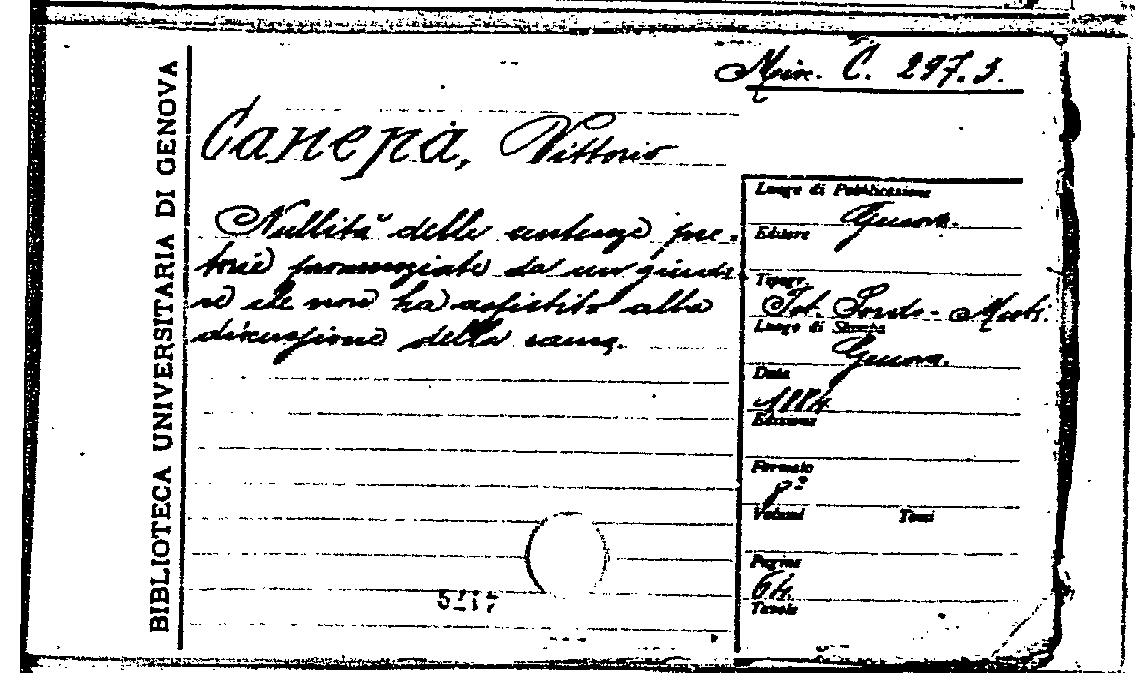 BIBLIOTECA UNIVERSITARIA DI GENOVA
Misc. C. 297.3.
Canepa, Vittorio
Nullità delle sentenze pre-
torie pronunziate da un giudi-
ce che non ha assistito alla
discussione della causa.
Luogo di Pubblicazione
Genova.
Editore
Tipogr.
Ist. Sordo-Muti.
Luogo di Stampa
Genova.
Data
1884
Edizione
Formato
8º
Volumi Tomi
Pagine
64.
Tavole